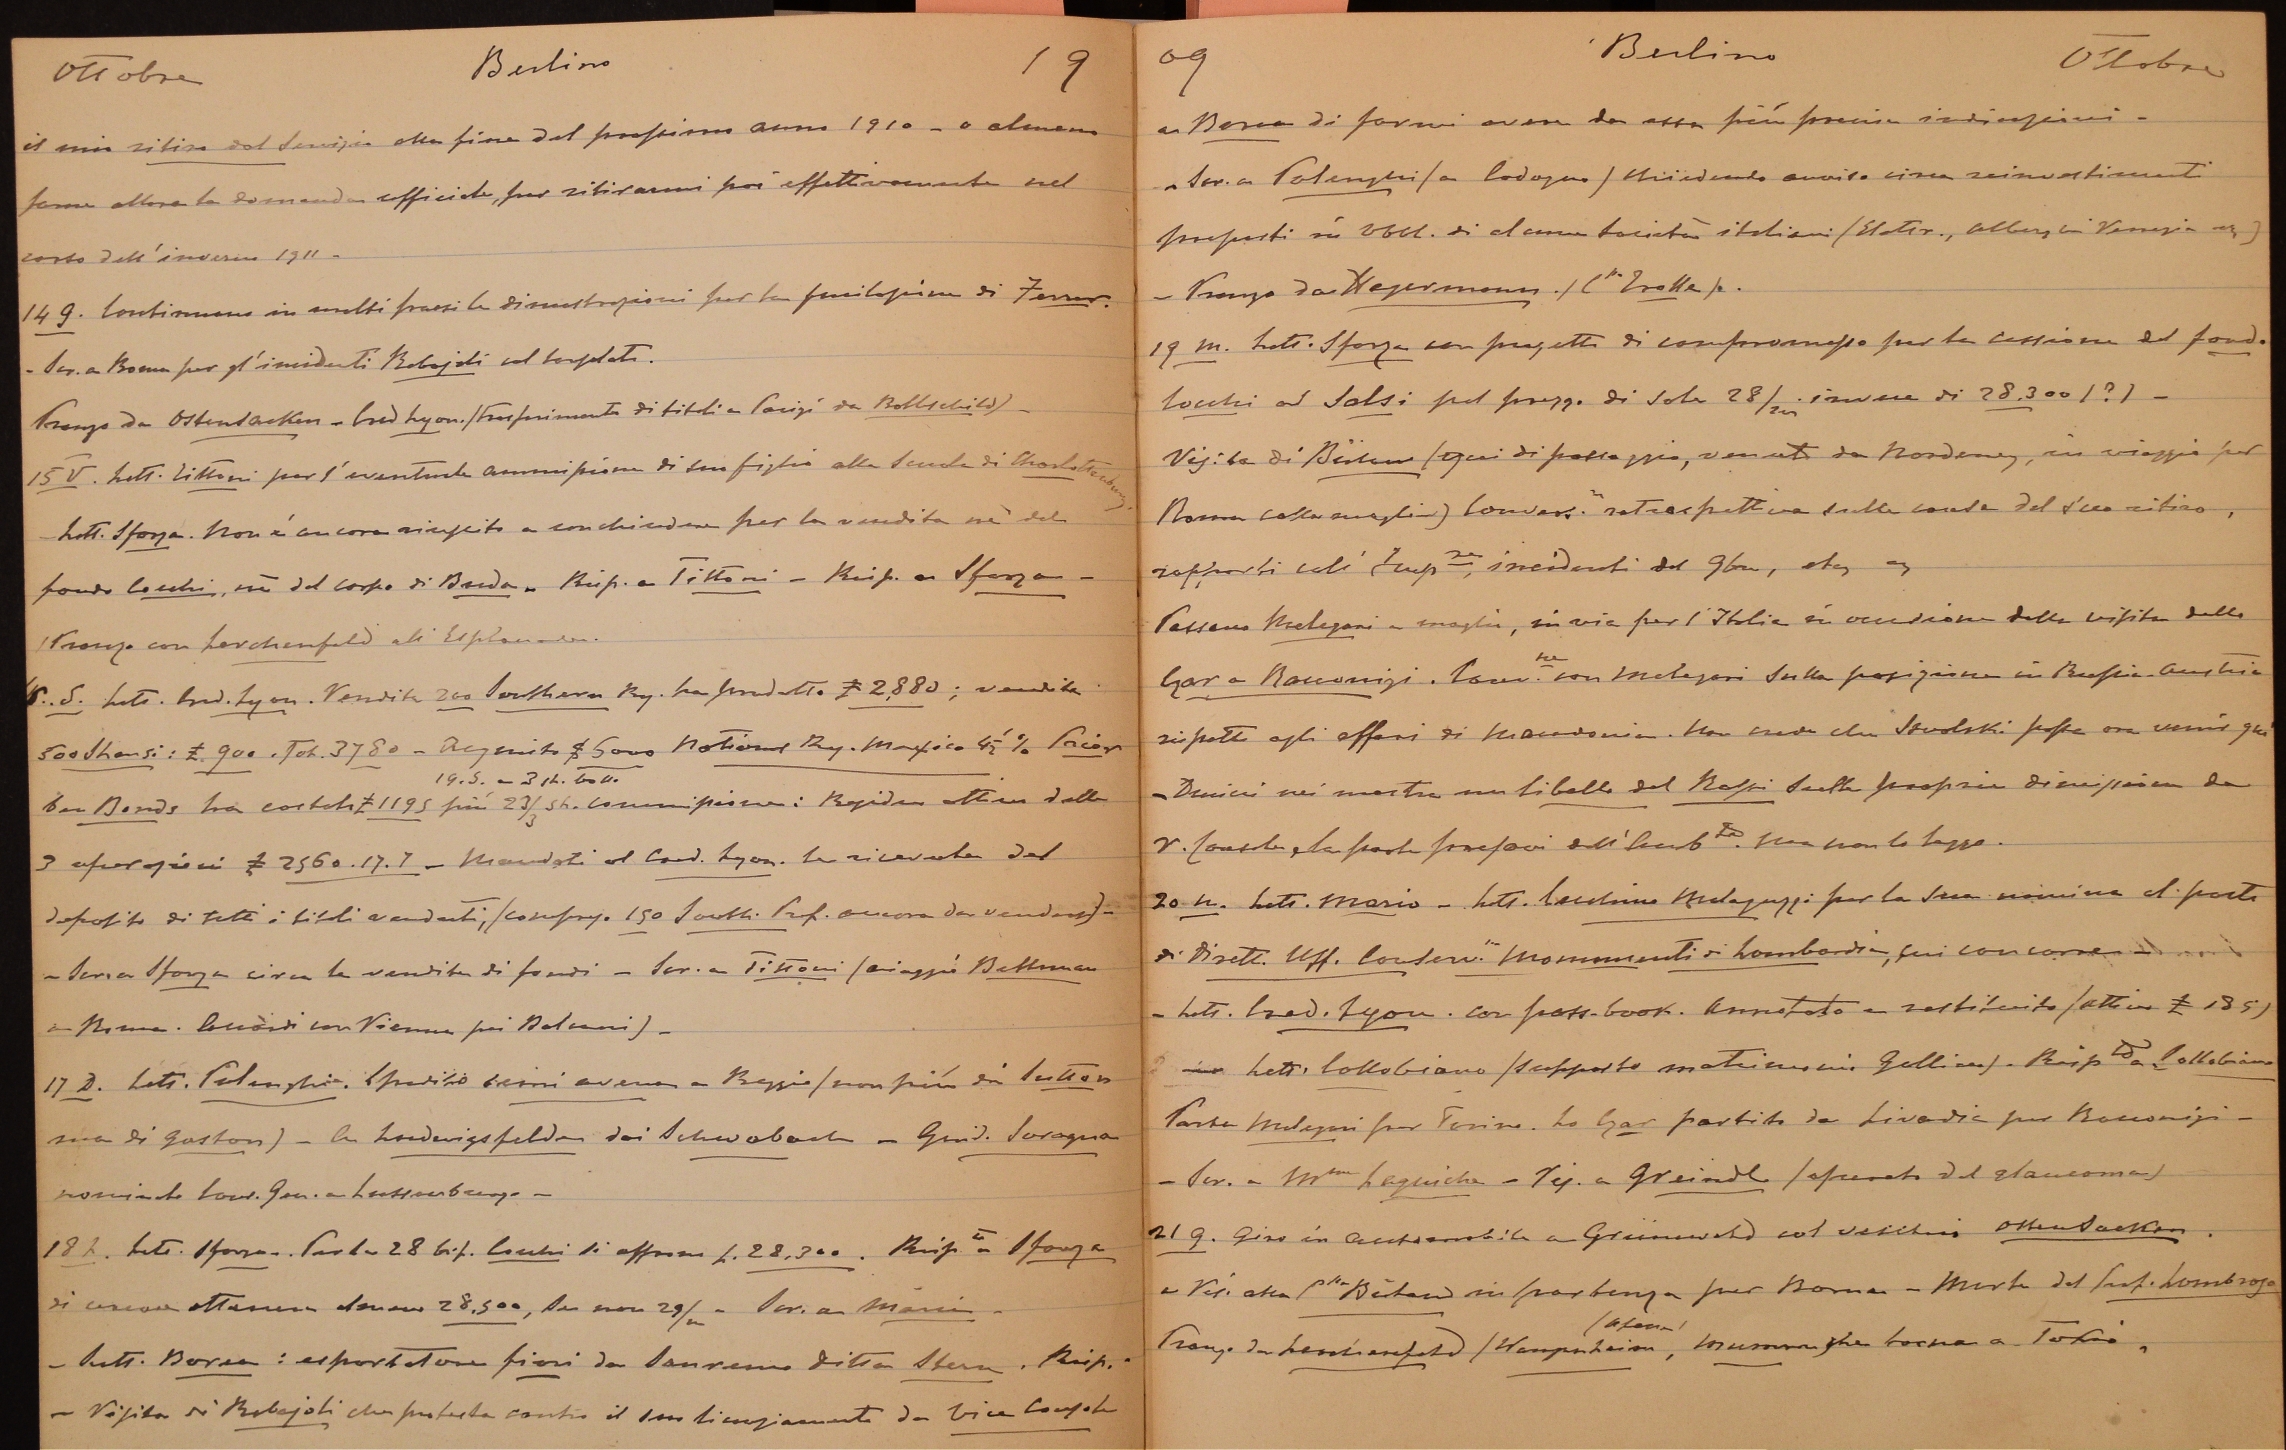 Ottobre Berlino 19
il mio ritiro dal Servizio alla fine del prossimo anno 1910 - o almeno
farne allora la domanda ufficiale, per ritirarmi poi effettivamente nel
corso dell'inverno 1911 -
14 G. Continuano in molti paesi le dimostrazioni per la fucilazione di Ferrer.
- Scr. a Roma per gl'incidenti Rebajoli col
Pranzo da Osten Sacken - Cred Lyon. (trasferimento di titoli a Parigi da Rothschild) -
15 V. Lett. Tittoni per l'eventuale ammissione di suo figlio alla Scuola di Charlottenburg.
- Lett. Sforza. Non è ancora riuscito a conchiudere per la vendita nè del
fondo Cocchi, nè del corpo di Breda - Risp. a Tittoni - Risp. a Sforza -
Pranzo con Lerchenfeld all'Esplanade.
16. S. Lett. Cred. Lyon. Vendita 200 Southern Ry. ha prodotto £ 2,880; vendita
500 Shansi: £ 900. Tot. 3780 - Acquisto $ 5000 National Ry. Mexico 4½ % Prior
19.S. a 3 sh. boll.
ben Bonds ha costato £ 1195 più 23/3 sh. commissione: Residuo attivo delle
3 operazioni £ 2560.17.7 - Mandati al Cred. Lyon. le ricevute del
deposito di tutti i titoli venduti, (compreso 150 South. Pref. ancora da vendere) -
- Scr. a Sforza circa la vendita di fondi - Scr. a Tittoni (viaggio Bethman
a Roma. Accordi con Vienna pei Balcani) -
17 D. Lett. Polenghi. Spedirò semi avena a Reggio (non più di Sutton
ma di Gaston) - A Ludwigsfelde dai Schwabach - Guid. Soragna
nominato Cons. Gen. a Lussemburgo -
18 L. Lett. Sforza. Per le 28 bif. Cocchi si offrono f. 28.300. Risp. a Sforza
di cercare ottenere almeno 28,500, se non 29/m - Scr. a Mario -
- Lett. Borea: esportatore fiori da Sanremo ditta Stern. Risp. -
- Visita di Rebajoli che protesta contro il suo licenziamento da Vice Console
09 Berlino Ottobre
a Borea di farmi avere da essa più precise indicazioni -
- Scr. a Polenghi (a Codogno) chiedendo avviso circa reinvestimenti
proposti in Obbl. di alcune Società italiane (Elettr., Alberghi Venezia ecc)
- Pranzo da Hegermann. (C.ssa Trolle).
19 M. Lett. Sforza con progetto di compromesso per la cessione del fond.
Cocchi ad Salsi pel prezzo di sole 28/m invece di 28.300 (?) -
Visita di Bülow (qui di passaggio, venuto da Norderney, in viaggio per
Roma colla moglie) Convers.ne retrospettiva sulle cause del suo ritiro,
rapporti coll'Imp.re, incidenti del 9bre, etc ec
Passano Melegari e moglie, in via per l'Italia in occasione della visita dello
Czar a Racconigi. Conv.ne con Melegari sulla posizione in Russia-Austria
rispetto agli affari di Macedonia. Non crede che Iswolski possa ora venir qui
- Dmici mi mostra un libello del Rossi sulla propria dimissione da
V. Console, e la parte presavi dell'Amb.ta. Ma non lo leggo.
20 M. Lett. Mario - Lett. Lucchino Malaguzzi per la sua nomina al posto
di Dirett. Uff. Conserv.ne Monumenti di Lombardia, cui concorre -
- Lett. Cred. Lyon. con pass-book. Annotato e restituito (attivo £ 185)
Lett. Collobiano (supposto matrimonio Gallian) - Risp.to a Collobiano
Parte Melegari per Torino. Lo Czar partito da Livadia per Racconigi -
- Scr. a Mme Laguiche - Vis. a Greindl (operato del glaucoma)
21 G. Giro in automobile a Grünewald col vecchio Osten Sacken.
- Vis. alla P.ssa Bülow in partenza per Roma - Morte del Prof. Lombroso
(Atene)
Pranzo da Lerchenfeld (Wangenheim, Mumm che torna a Tokio.